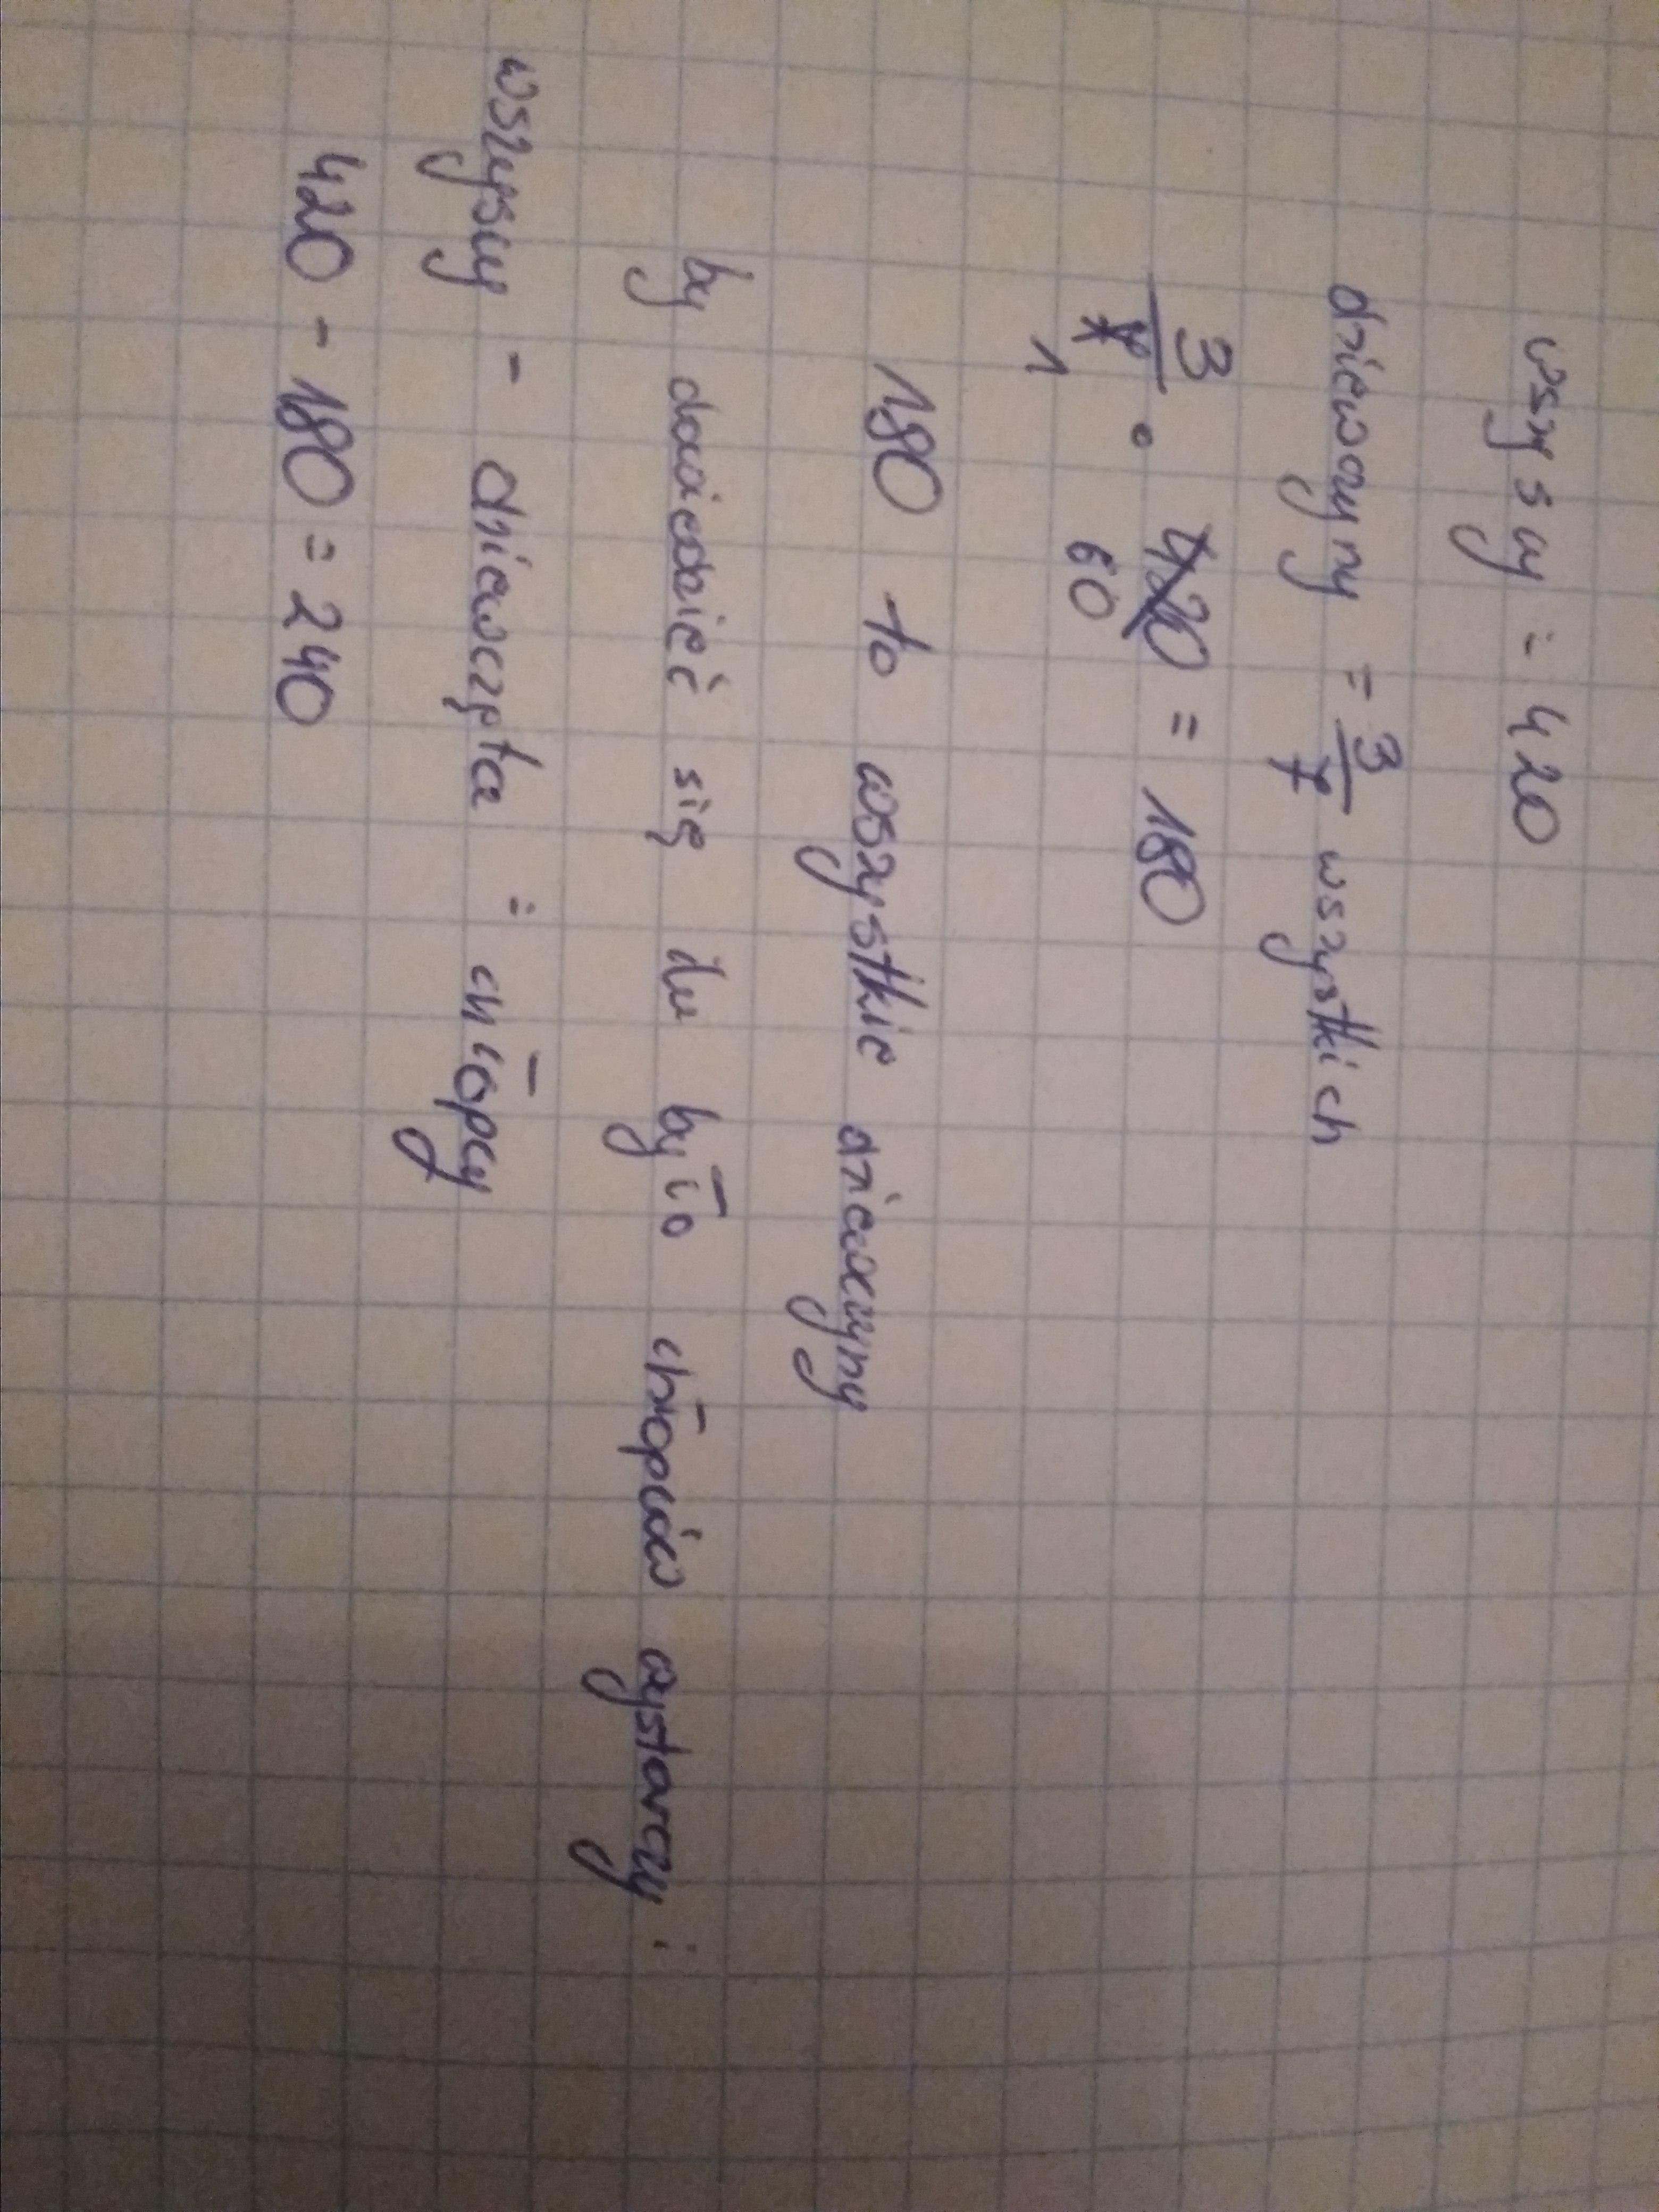 wszyscy = 420
dziewczyny = 3/7 wszystkich
3/7 • 420 = 180
1 60
180 to wszystkie dziewczyny
by dowiedzieć się ilu było chłopców wystarczy:
wszyscy - dziewczęta = chłopcy
420 - 180 = 240